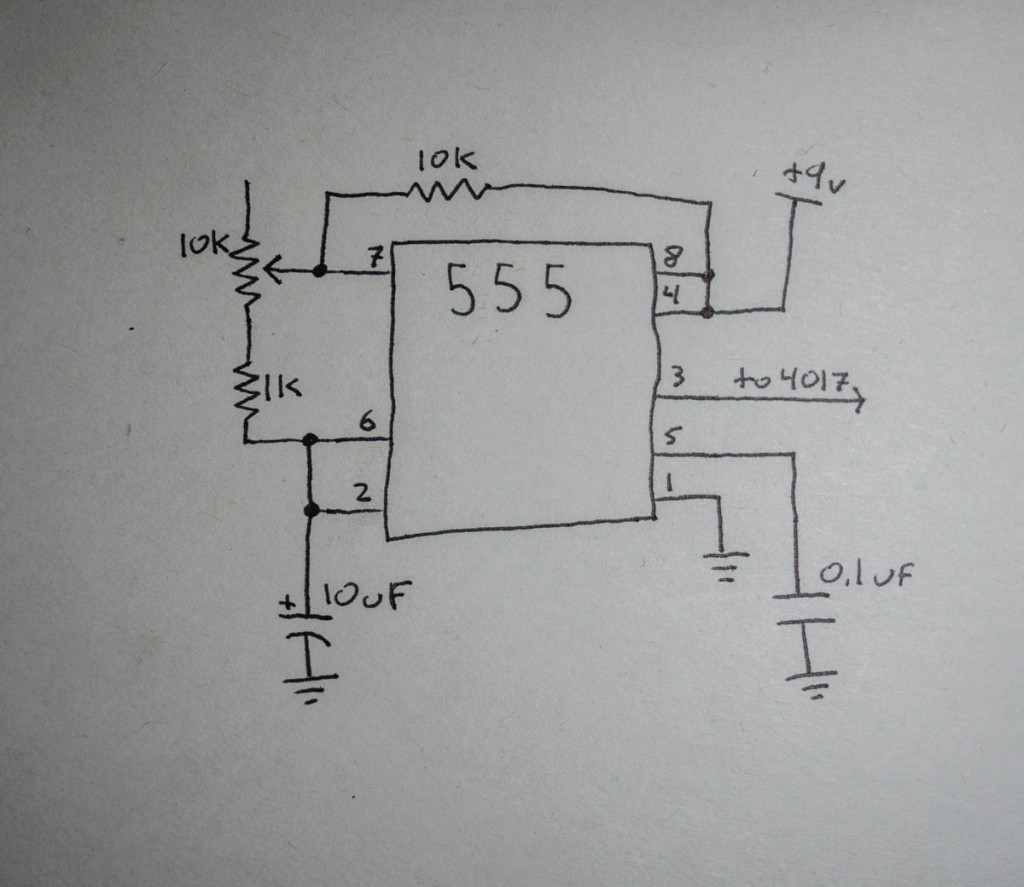 10K
+9v
10K
7
555
8
4
1K
3
to 4017
6
5
2
1
0.1uF
+
10uF